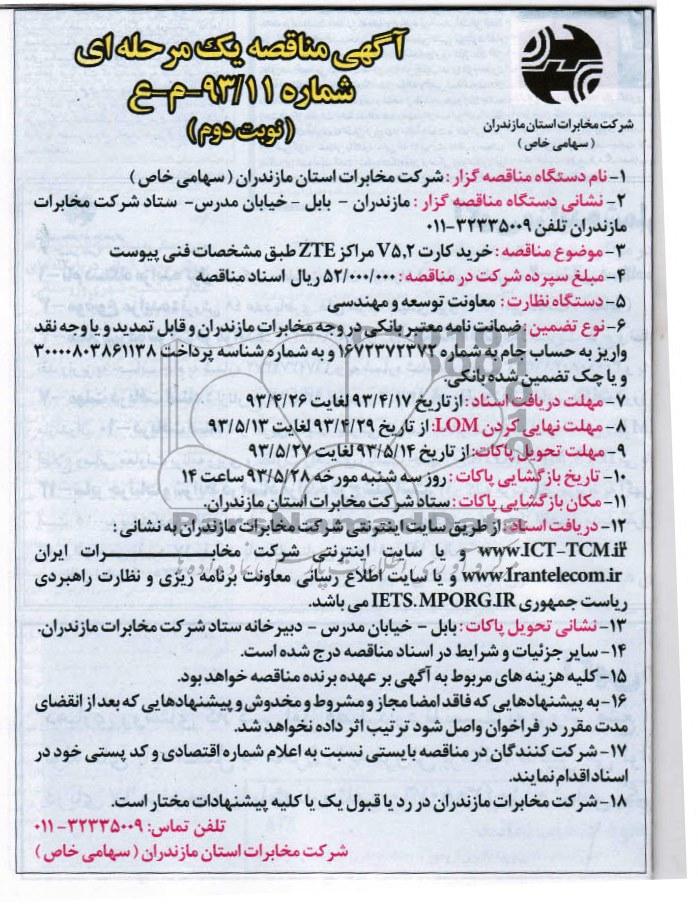 آگهی مناقصه یک مرحله ای
شماره ۹۳/۱۱-م-ع
(نوبت دوم)
شرکت مخابرات استان مازندران
(سهامی خاص)
۱- نام دستگاه مناقصه گزار: شرکت مخابرات استان مازندران (سهامی خاص)
۲- نشانی دستگاه مناقصه گزار: مازندران - بابل - خیابان مدرس- ستاد شرکت مخابرات
مازندران تلفن ۳۲۳۳۵۰۰۹-۰۱۱
۳- موضوع مناقصه: خرید کارت V۵,۲ مراکز ZTE طبق مشخصات فنی پیوست
۴- مبلغ سپرده شرکت در مناقصه: ۵۲/۰۰۰/۰۰۰ ریال اسناد مناقصه
۵- دستگاه نظارت: معاونت توسعه و مهندسی
۶- نوع تضمین: ضمانت نامه معتبر بانکی در وجه مخابرات مازندران و قابل تمدید و یا وجه نقد
واریز به حساب جام به شماره ۱۶۷۲۳۷۲۳۷۲ و به شماره شناسه پرداخت ۳۰۰۰۰۸۰۳۸۶۱۱۳۸
و یا چک تضمین شده بانکی.
۷- مهلت دریافت اسناد: از تاریخ ۹۳/۴/۱۷ لغایت ۹۳/۴/۲۶
۸- مهلت نهایی کردن LOM: از تاریخ ۹۳/۴/۲۹ لغایت ۹۳/۵/۱۳
۹- مهلت تحویل پاکات: از تاریخ ۹۳/۵/۱۴ لغایت ۹۳/۵/۲۷
۱۰- تاریخ بازگشایی پاکات: روز سه شنبه مورخه ۹۳/۵/۲۸ ساعت ۱۴
۱۱- مکان بازگشایی پاکات: ستاد شرکت مخابرات استان مازندران.
۱۲- دریافت اسناد: از طریق سایت اینترنتی شرکت مخابرات مازندران به نشانی:
www.ICT-TCM.ir و یا سایت اینترنتی شرکت مخابرات ایران
www.Irantelecom.ir و یا سایت اطلاع رسانی معاونت برنامه ریزی و نظارت راهبردی
ریاست جمهوری IETS.MPORG.IR می باشد.
۱۳- نشانی تحویل پاکات: بابل - خیابان مدرس - دبیرخانه ستاد شرکت مخابرات مازندران.
۱۴- سایر جزئیات و شرایط در اسناد مناقصه درج شده است.
۱۵- کلیه هزینه های مربوط به آگهی بر عهده برنده مناقصه خواهد بود.
۱۶- به پیشنهادهایی که فاقد امضا مجاز و مشروط و مخدوش و پیشنهادهایی که بعد از انقضای
مدت مقرر در فراخوان واصل شود ترتیب اثر داده نخواهد شد.
۱۷- شرکت کنندگان در مناقصه بایستی نسبت به اعلام شماره اقتصادی و کد پستی خود در
اسناد اقدام نمایند.
۱۸- شرکت مخابرات مازندران در رد یا قبول یک یا کلیه پیشنهادات مختار است.
تلفن تماس: ۳۲۳۳۵۰۰۹-۰۱۱
شرکت مخابرات استان مازندران (سهامی خاص)